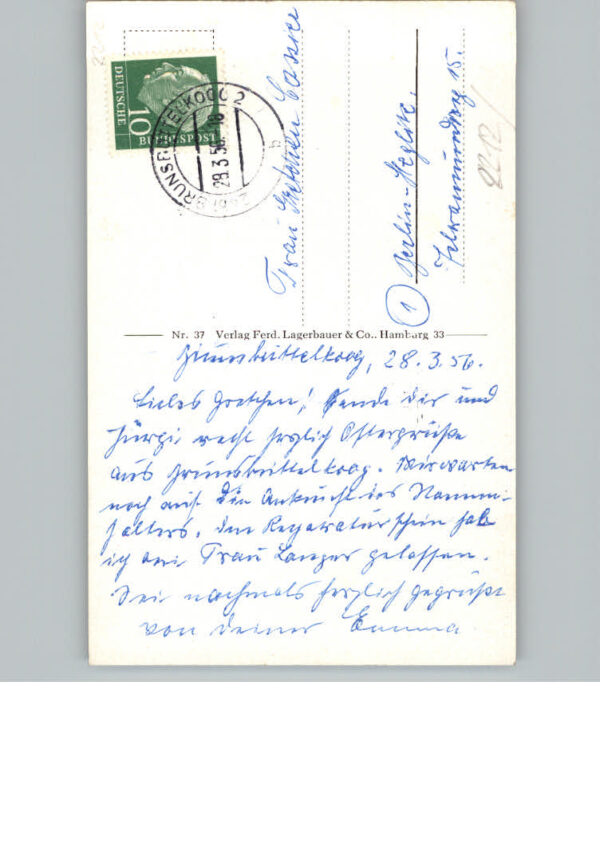 DEUTSCHE
10
BUNDESPOST
BRUNSBÜTTELKOOG 2
28.3.56
Frau
Berlin-Steglitz,
15.
2212
Nr. 37 Verlag Ferd. Lagerbauer & Co., Hamburg 33
Brunsbüttelkoog, 28.3.56.
Liebes Gretchen! Sende dir und
recht herzlich Ostergrüße
aus Brunsbüttelkoog. Wir warten
noch auf die Ankunft des
halters. den Reparaturschein hab
ich bei Frau Langer gelassen.
Sei nochmals herzlich gegrüßt
von deiner Emma